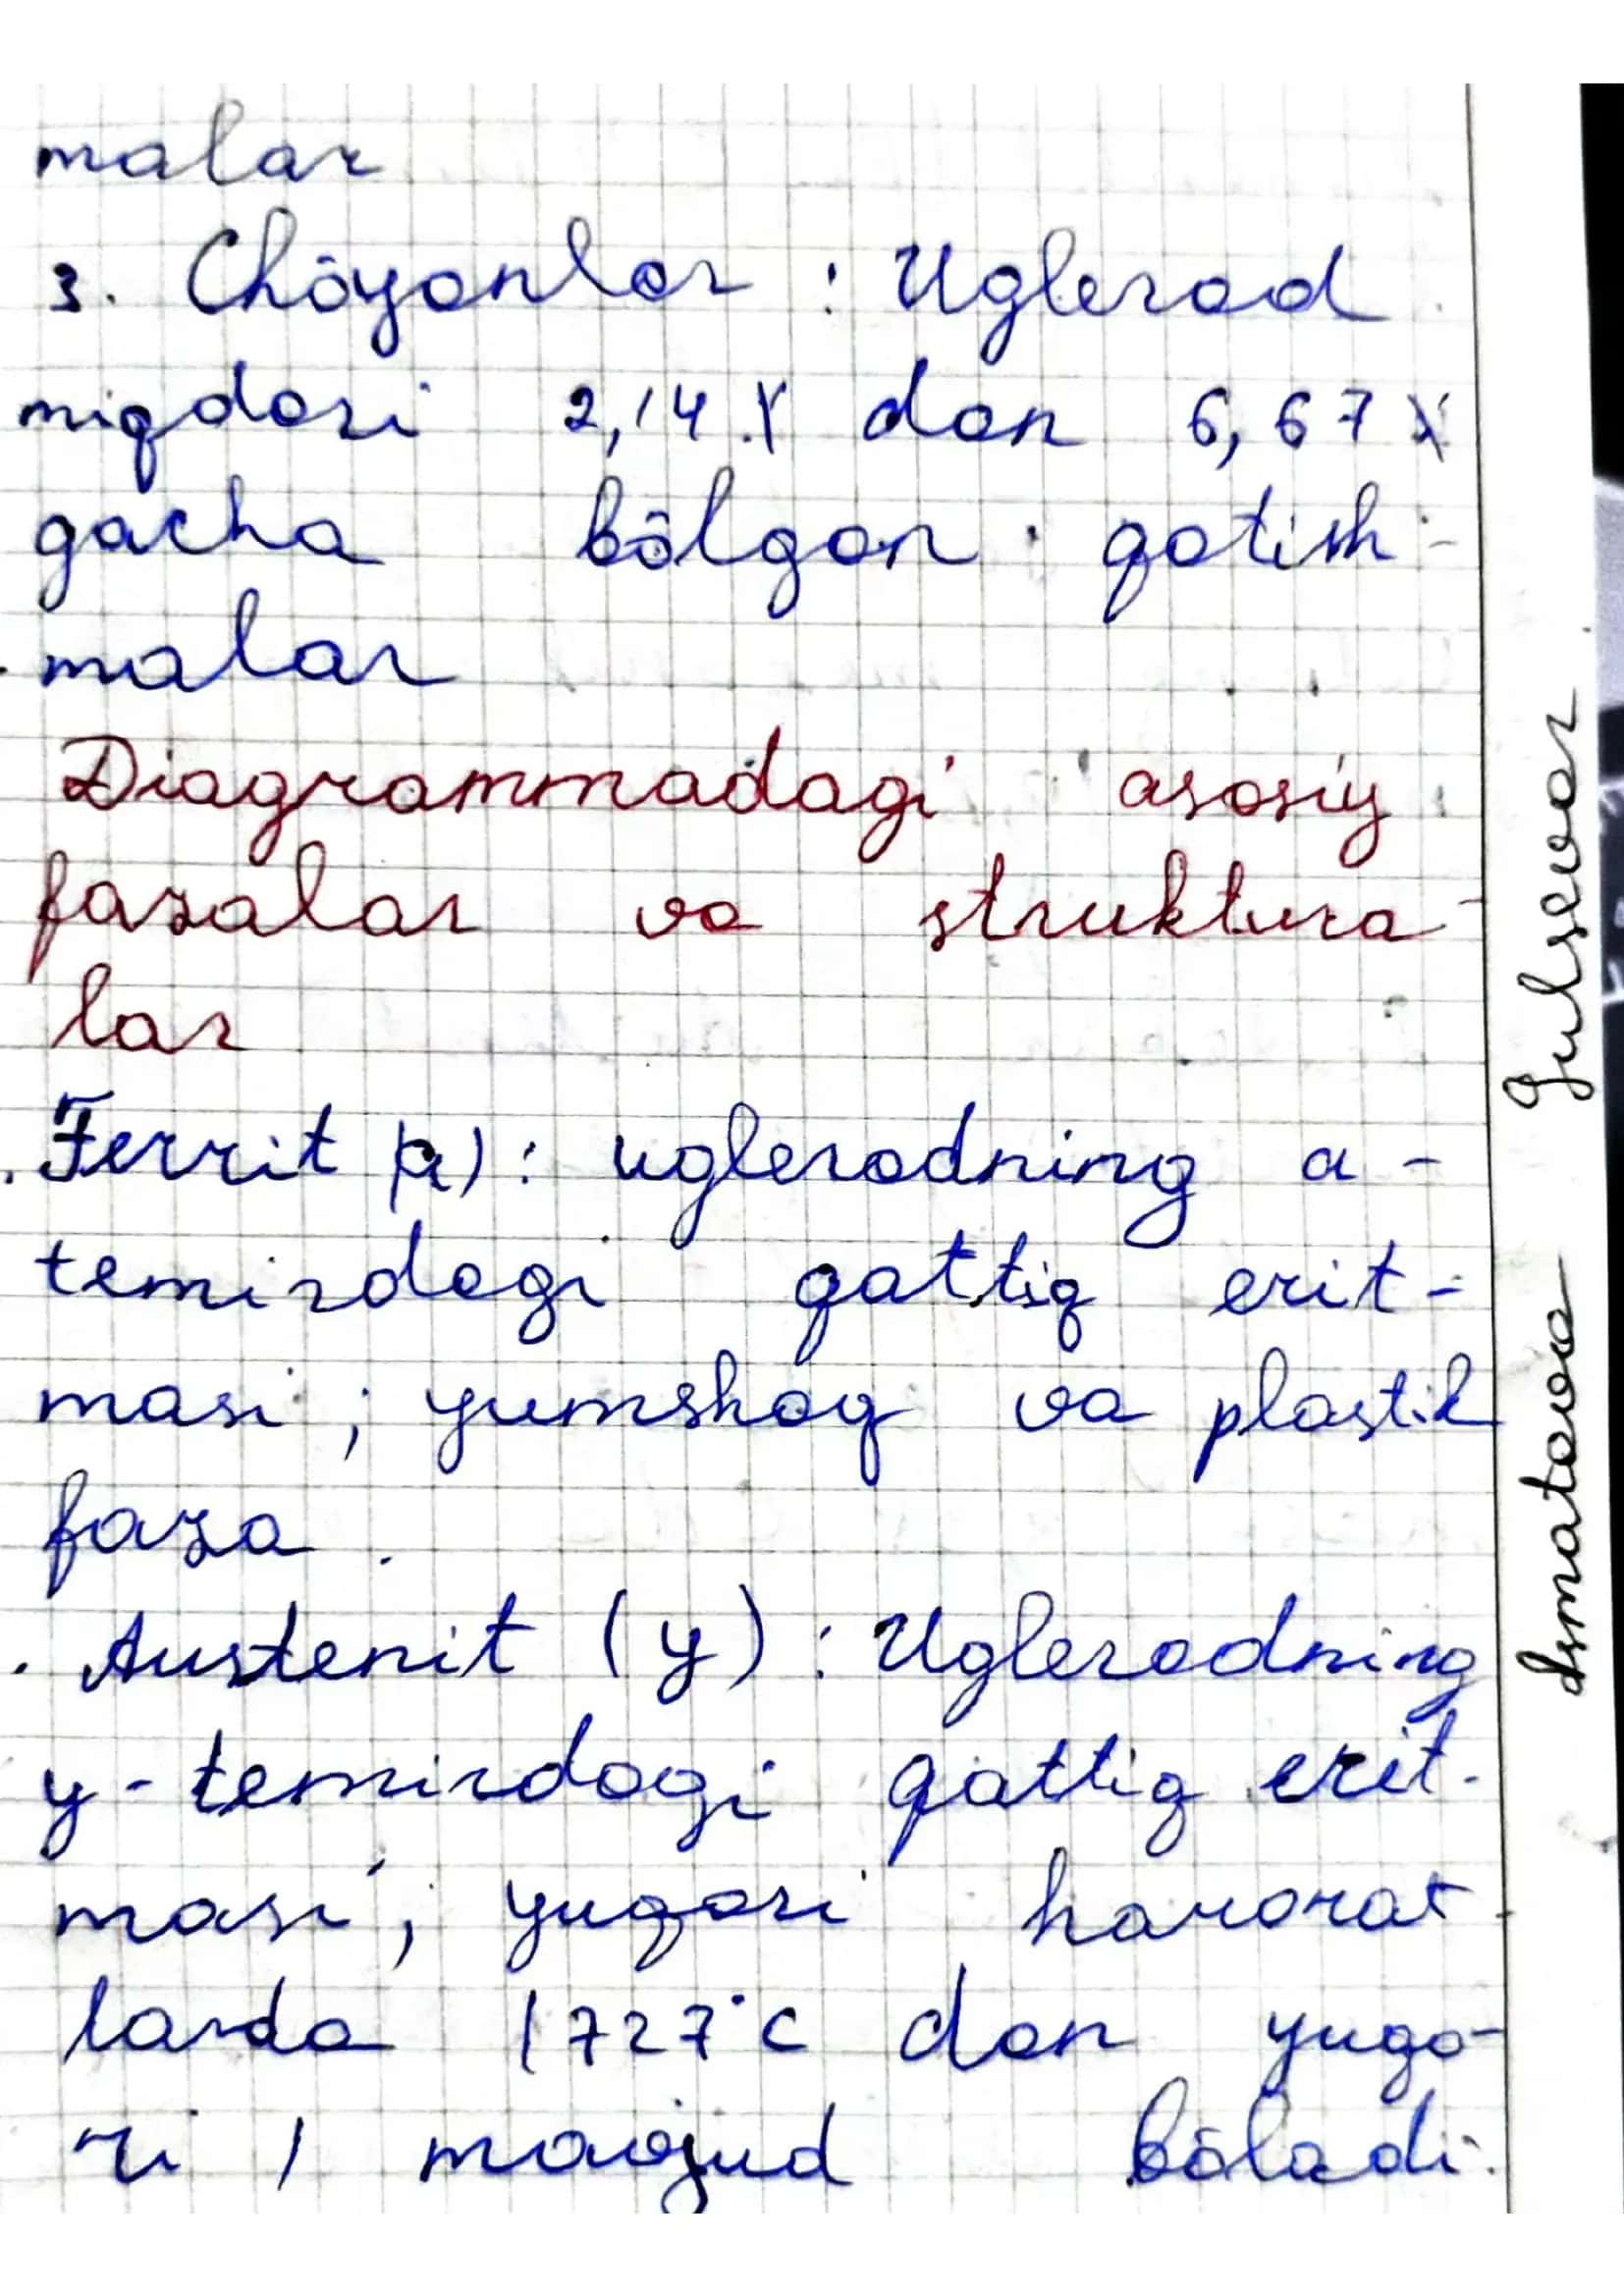 malar
3. Chōyanlar : Uglerod
miqdori 2,14 % dan 6,67 %
gacha bōlgan qotish-
malar
Diagrammadagi asosiy
fazalar va struktura-
lar
. Ferrit (a) : uglerodning a-
temirdagi qattiq erit-
masi ; yumshoq va plastik
faza .
. Austenit (y) : Uglerodning
y-temirdagi qattiq erit-
masi ; yuqori harorat-
larda (727°C dan yuqo-
ri ) mavjud bōladi.
Ismatova Gulsevar